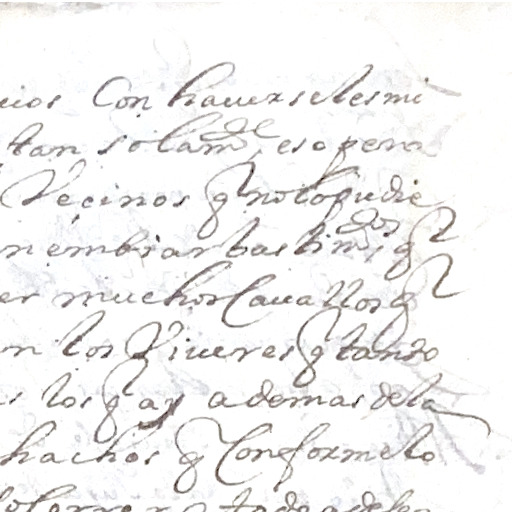 uios Con hauerseles mi
tan solamde esopena
Vecinos q no lo pudie
n embiar bastimdos, q
er muchos Cauallos q
n los Viueres q tanto
s los q ay ademas de la
hachos q Conforme lo